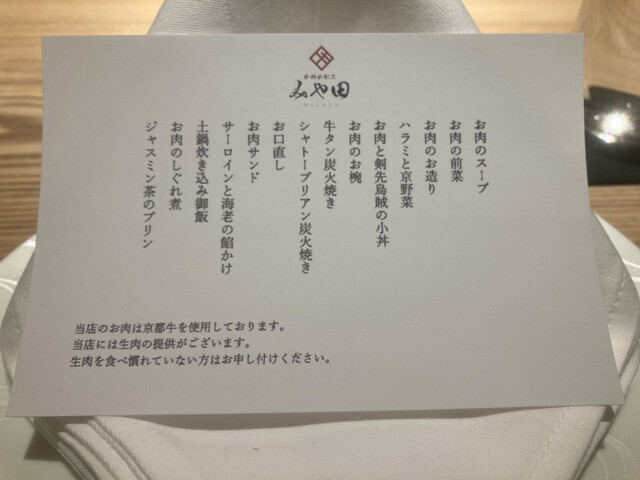 みや田
お肉のスープ
お肉の前菜
お肉のお造り
ハラミと京野菜
お肉と剣先烏賊の小丼
お肉のお椀
牛タン炭火焼き
シャトーブリアン炭火焼き
お口直し
お肉サンド
サーロインと海老の餡かけ
土鍋炊き込み御飯
お肉のしぐれ煮
ジャスミン茶のプリン
当店のお肉は京都牛を使用しております。
当店には生肉の提供がございます。
生肉を食べ慣れていない方はお申し付けください。